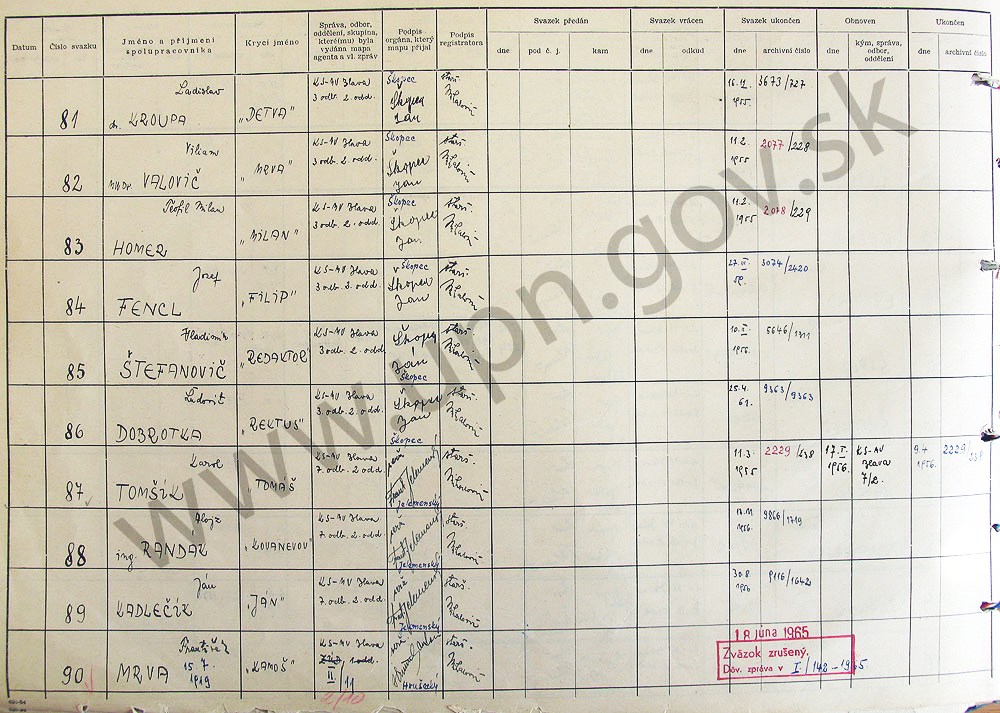 Datum
Číslo svazku
Jméno a příjmení
spolupracovníka
Krycí jméno
Správa, odbor,
oddělení, skupina,
které(mu) byla
vydána mapa
agenta a vl. zpráv
Podpis
orgána, který
mapu přijal
Podpis
registratora
Svazek předán
dne
pod č. j.
kam
Svazek vrácen
dne
odkud
Svazek ukončen
dne
archivní číslo
Obnoven
dne
kým, správa,
odbor,
oddělení
Ukončen
dne
archivní číslo
81
Ladislav
dr. KROUPA
„DETVA"
KS-MV Ilava
3 odb. 2. odd.
Škopec
Škopec
Ján
1955.
3673/727
82
Viliam
MUDr. VALOVIČ
„MRVA"
KS-MV Ilava
3 odb. 2. odd.
Škopec
Škopec
Ján
11.2.
1955
2077/228
83
Teofil Milan
HOMER
„MILAN"
KS-MV Ilava
3 odb. 2. odd.
Škopec
Škopec
Ján
11.2.
1955
2078/229
84
Jozef
FENCL
„FILIP"
KS-MV Ilava
3 odb. 3. odd.
Škopec
Škopec
Ján
3074/2420
85
Vladimír
ŠTEFANOVIČ
„REDAKTOR"
KS-MV Ilava
3 odb. 2. odd.
Škopec
Ján
Škopec
1956.
86
Ľudovít
DOBROTKA
„REKTUS"
KS-MV Ilava
3. odb. 2. odd.
Škopec
Ján
Škopec
25.4.
61.
9363/9363
87
Karol
TOMŠIK
TOMÁŠ
KS-MV Ilava
7. odb. 2. odd.
Jelemenský
11.3.
1955
2229/238
17.I.
1956.
KS-MV
Ilava
7/2.
9.4
1956.
2229/238
88
Alojz
ing. RANDAK
KS-MV Ilava
7. odb. 2. odd.
Jelemenský
1956.
9866/1719
89
Ján
KADLEČÍK
„JÁN"
KS-MV Ilava
7. odb. 2. odd.
Jelemenský
30.8.
1956
9116/1642
90
František
MRVA
15.7.
1919
„KAMOŠ"
KS-MV Ilava
1. odd.
II/11
2/10
Hrušecký
18 júna 1965
Zväzok zrušený.
Dôv. zpráva v I./142-1965
www.upn.gov.sk